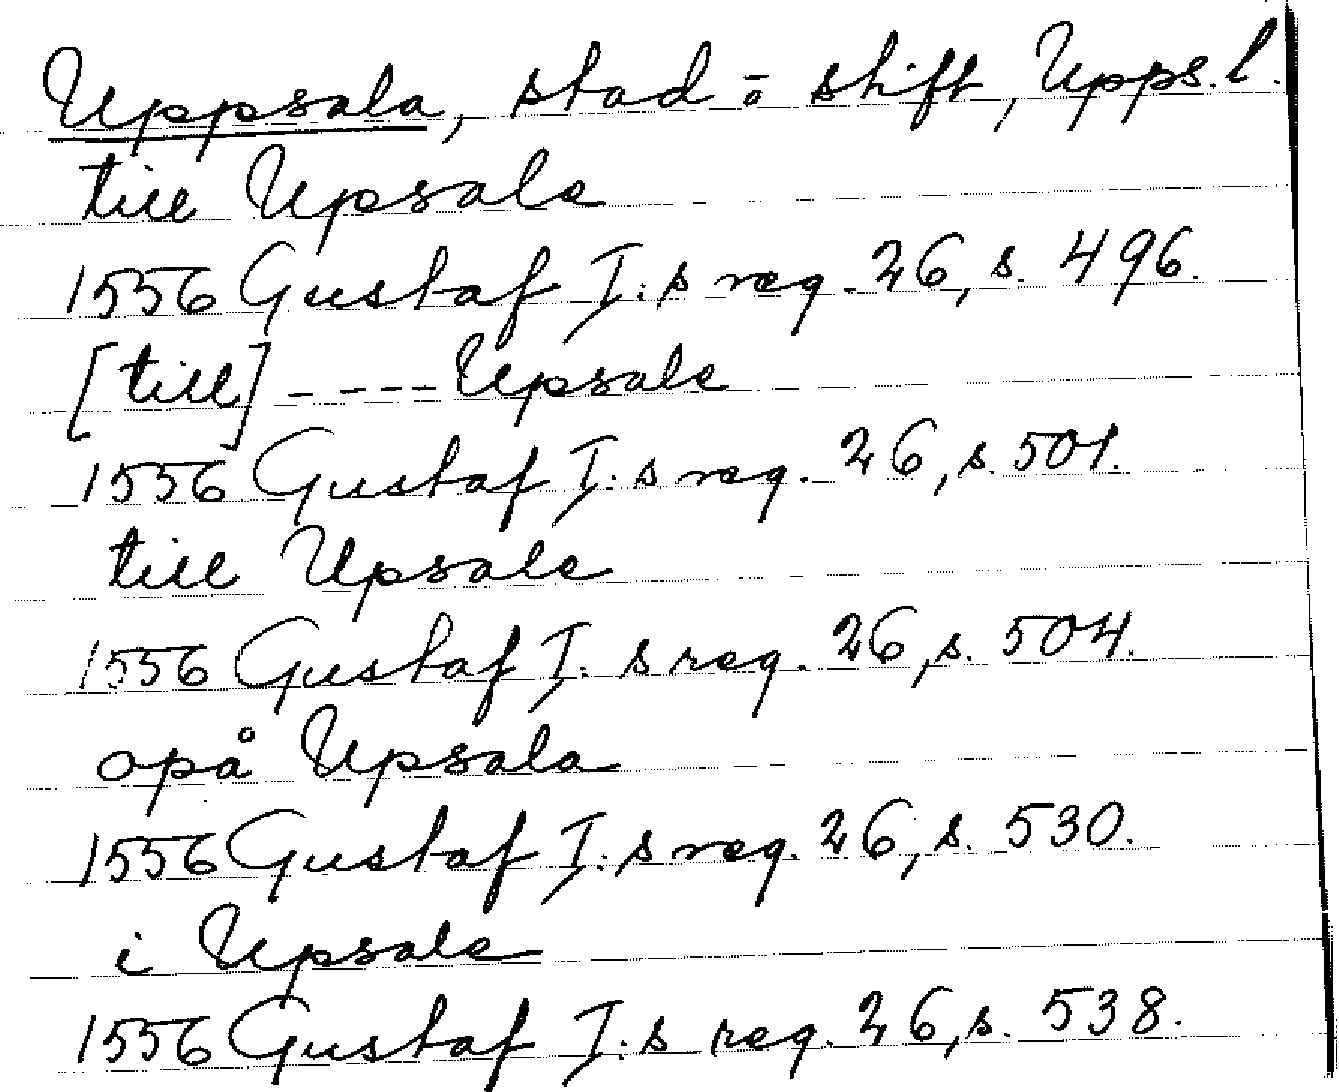 Uppsala, stad o stift, Upps. l.
till Upsale
1556 Gustaf I:s reg. 26, s. 496.
[till] ---- Upsale
1556 Gustaf I:s reg. 26, s. 501.
till Upsale
1556 Gustaf I:s reg. 26, s. 504.
opå Upsala
1556 Gustaf I:s reg. 26, s. 530.
i Upsale
1556 Gustaf I:s reg. 26, s. 538.